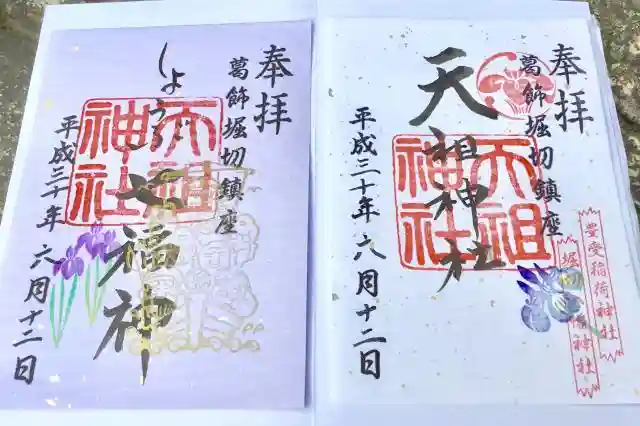 奉拝
葛飾堀切鎮座
天祖神社
平成三十年六月十二日
天祖
神社
豊受稲荷神社
奉拝
葛飾堀切鎮座
七福神
平成三十年六月十二日
天祖
神社